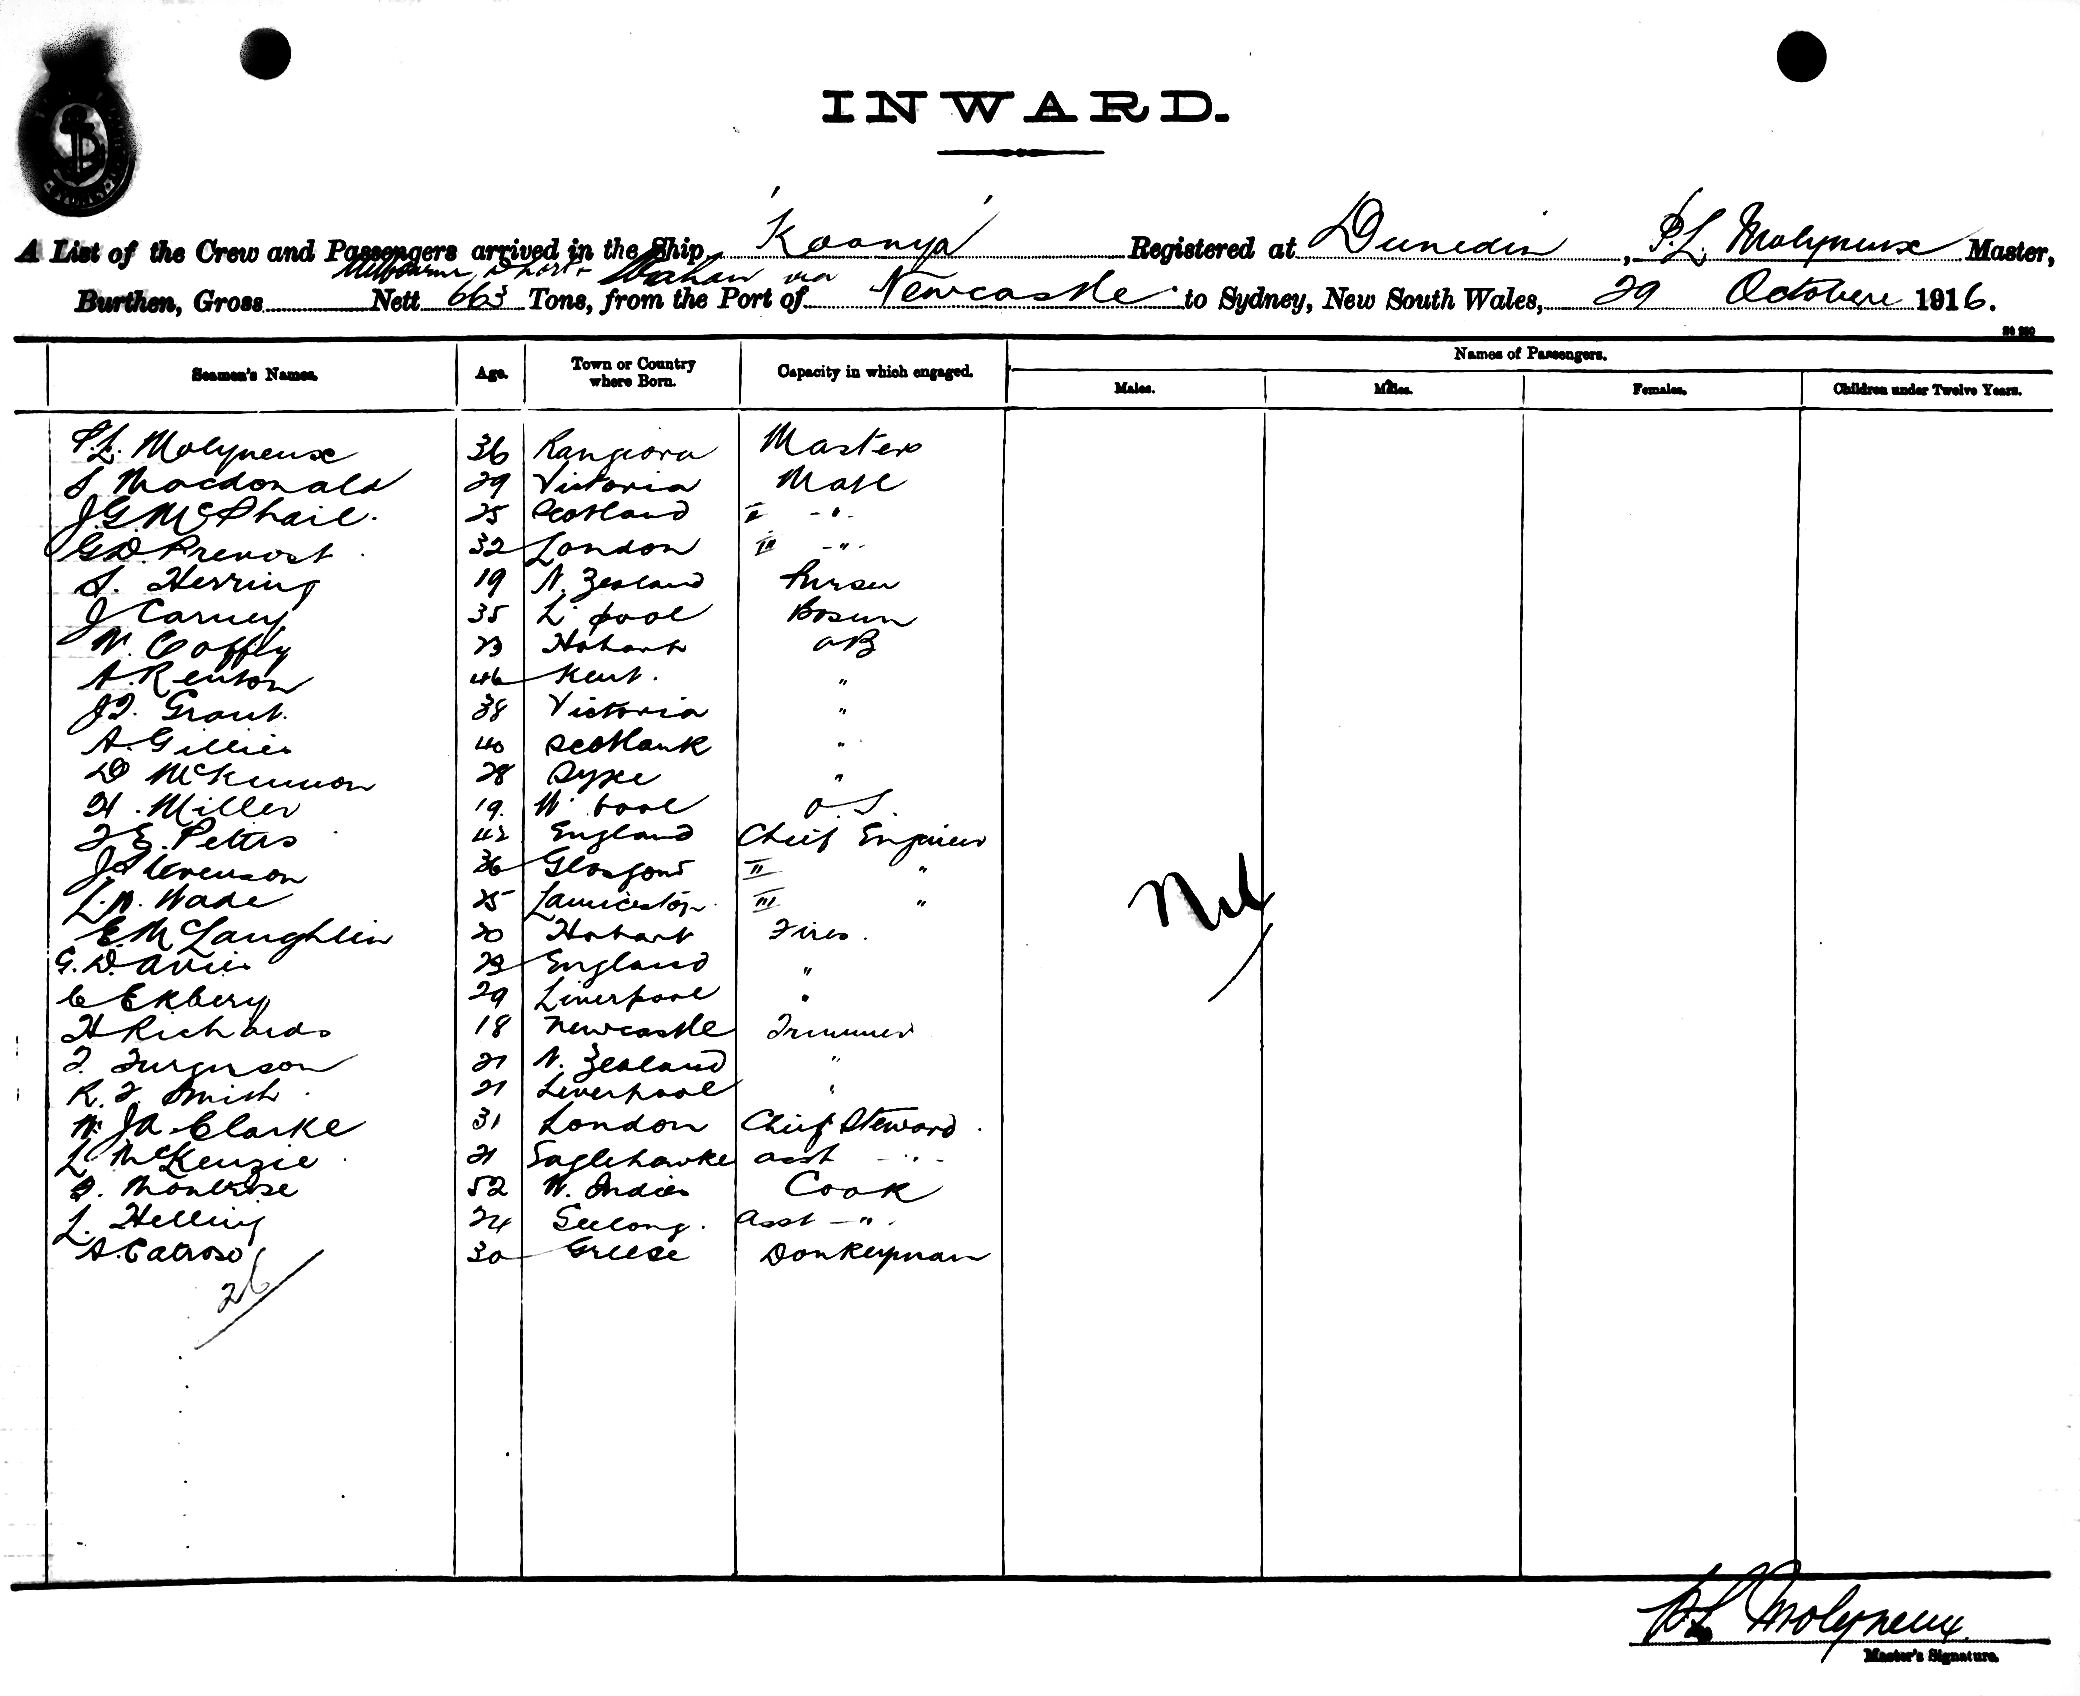 INWARD.
A List of the Crew and Passengers arrived in the Ship 'Koonya' Registered at Dunedin, P.L. Molyneux Master,
Melbourne, Strahan via
Burthen, Gross Nett 663 Tons, from the Port of Newcastle to Sydney, New South Wales, 29 October 1916.
Seamen's Names. Age. Town or Country where Born. Capacity in which engaged. Names of Passengers.
Males. Males. Females. Children under Twelve Years.
P.L. Molyneux 36 Rangiora Master
S Macdonald 29 Victoria Mate
J.G. McPhail. 25 Scotland II -"-
G.D. Prevost 32 London III -"-
S. Herring 19 N. Zealand Purser
J Carney 35 L'pool Bosun
W. Coffey 23 Hobart AB
A. Renton 46 Kent. "
J.F. Grant. 38 Victoria "
A. Gillies 40 Scotland "
D McKinnon 28 Skye "
H. Miller 19. W'pool O.S.
F E. Peters 42 England Chief Engineer
J Stevenson 36 Glasgow II "
L.W. Wade 25 Launceston. III "
E. McLaughlin 20 Hobart Fires.
G. Davies 23 England "
C Ekberg 29 Liverpool "
H Richards 18 Newcastle Trimmer
F. Furgurson 21 N. Zealand "
R. F. Smith. 21 Liverpool "
W. JA. Clarke 31 London Chief Steward.
L McKenzie. 21 Eaglehawke asst -"-
Montrose 52 W. Indies Cook
L. Helling 24 Geelong. asst -"-
A. Catroso 30 Greese Donkeyman
26
Nil
P L Molyneux.
Master's Signature.